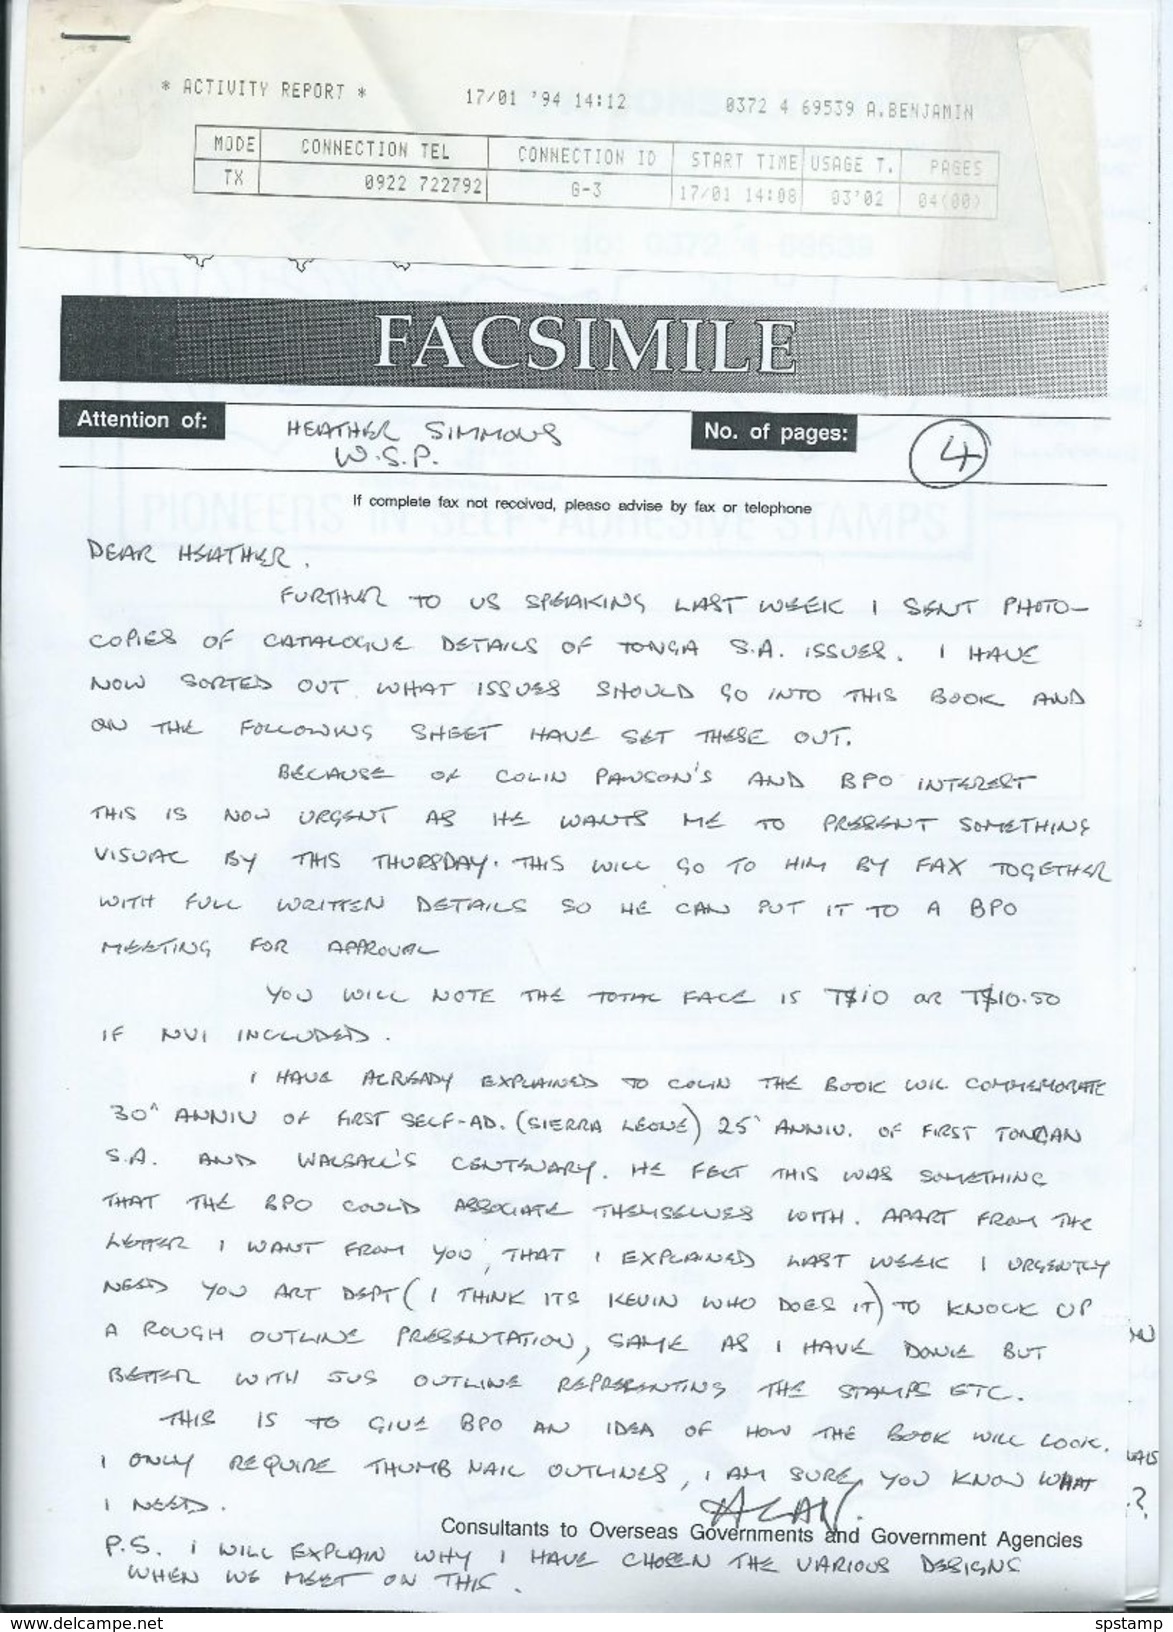 * ACTIVITY REPORT * 17/01 '94 14:12 0372 4 69539 A.BENJAMIN
MODE CONNECTION TEL CONNECTION ID START TIME USAGE T. PAGES
TX 0922 722792 G-3 17/01 14:08 03'02 04(00)
FAX NO: 0372 4 69539
FACSIMILE
Attention of: HEATHER SIMMONS No. of pages: 4
W.S.P.
If complete fax not received, please advise by fax or telephone
PIONEERS IN SELF-ADHESIVE STAMPS
DEAR HEATHER,
FURTHER TO US SPEAKING LAST WEEK I SENT PHOTO-
COPIES OF CATALOGUE DETAILS OF TONGA S.A. ISSUES. I HAVE
NOW SORTED OUT WHAT ISSUES SHOULD GO INTO THIS BOOK AND
ON THE FOLLOWING SHEET HAVE SET THESE OUT.
BECAUSE OF COLIN PAWSON'S AND BPO INTEREST
THIS IS NOW URGENT AS HE WANTS ME TO PRESENT SOMETHING
VISUAL BY THIS THURSDAY. THIS WILL GO TO HIM BY FAX TOGETHER
WITH FULL WRITTEN DETAILS SO HE CAN PUT IT TO A BPO
MEETING FOR APPROVAL
YOU WILL NOTE THE TOTAL FACE IS T$10 OR T$10.50
IF NVI INCLUDED.
I HAVE ALREADY EXPLAINED TO COLIN THE BOOK WIL COMMEMORATE
30^ ANNIV OF FIRST SELF-AD. (SIERRA LEONE) 25^ ANNIV. OF FIRST TONGAN
S.A. AND WALSALL'S CENTENARY. HE FELT THIS WAS SOMETHING
THAT THE BPO COULD ASSOCIATE THEMSELVES WITH. APART FROM THE
LETTER I WANT FROM YOU, THAT I EXPLAINED LAST WEEK I URGENTLY
NEED YOU ART DEPT (I THINK ITS KEVIN WHO DOES IT) TO KNOCK UP
A ROUGH OUTLINE PRESENTATION, SAME AS I HAVE DONE BUT
BETTER WITH JUS OUTLINE REPRESENTING THE STAMPS ETC.
THIS IS TO GIVE BPO AN IDEA OF HOW THE BOOK WILL LOOK.
I ONLY REQUIRE THUMB NAIL OUTLINES, I AM SURE YOU KNOW WHAT
I NEED. ALAN.
Consultants to Overseas Governments and Government Agencies
P.S. I WILL EXPLAIN WHY I HAVE CHOSEN THE VARIOUS DESIGNS
WHEN WE MEET ON THIS.
www.delcampe.net spstamp